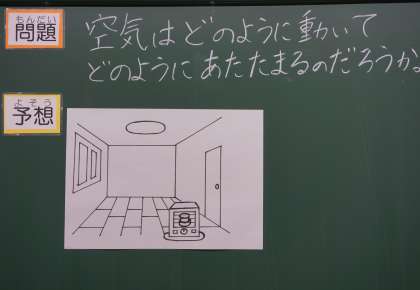 もんだい
問題
空気はどのように動いて
どのようにあたたまるのだろうか。
よそう
予想